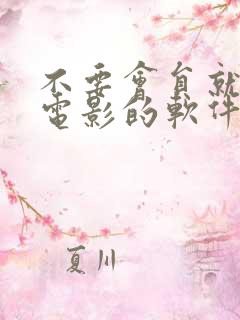 不要會員就
電影的軟件
夏川